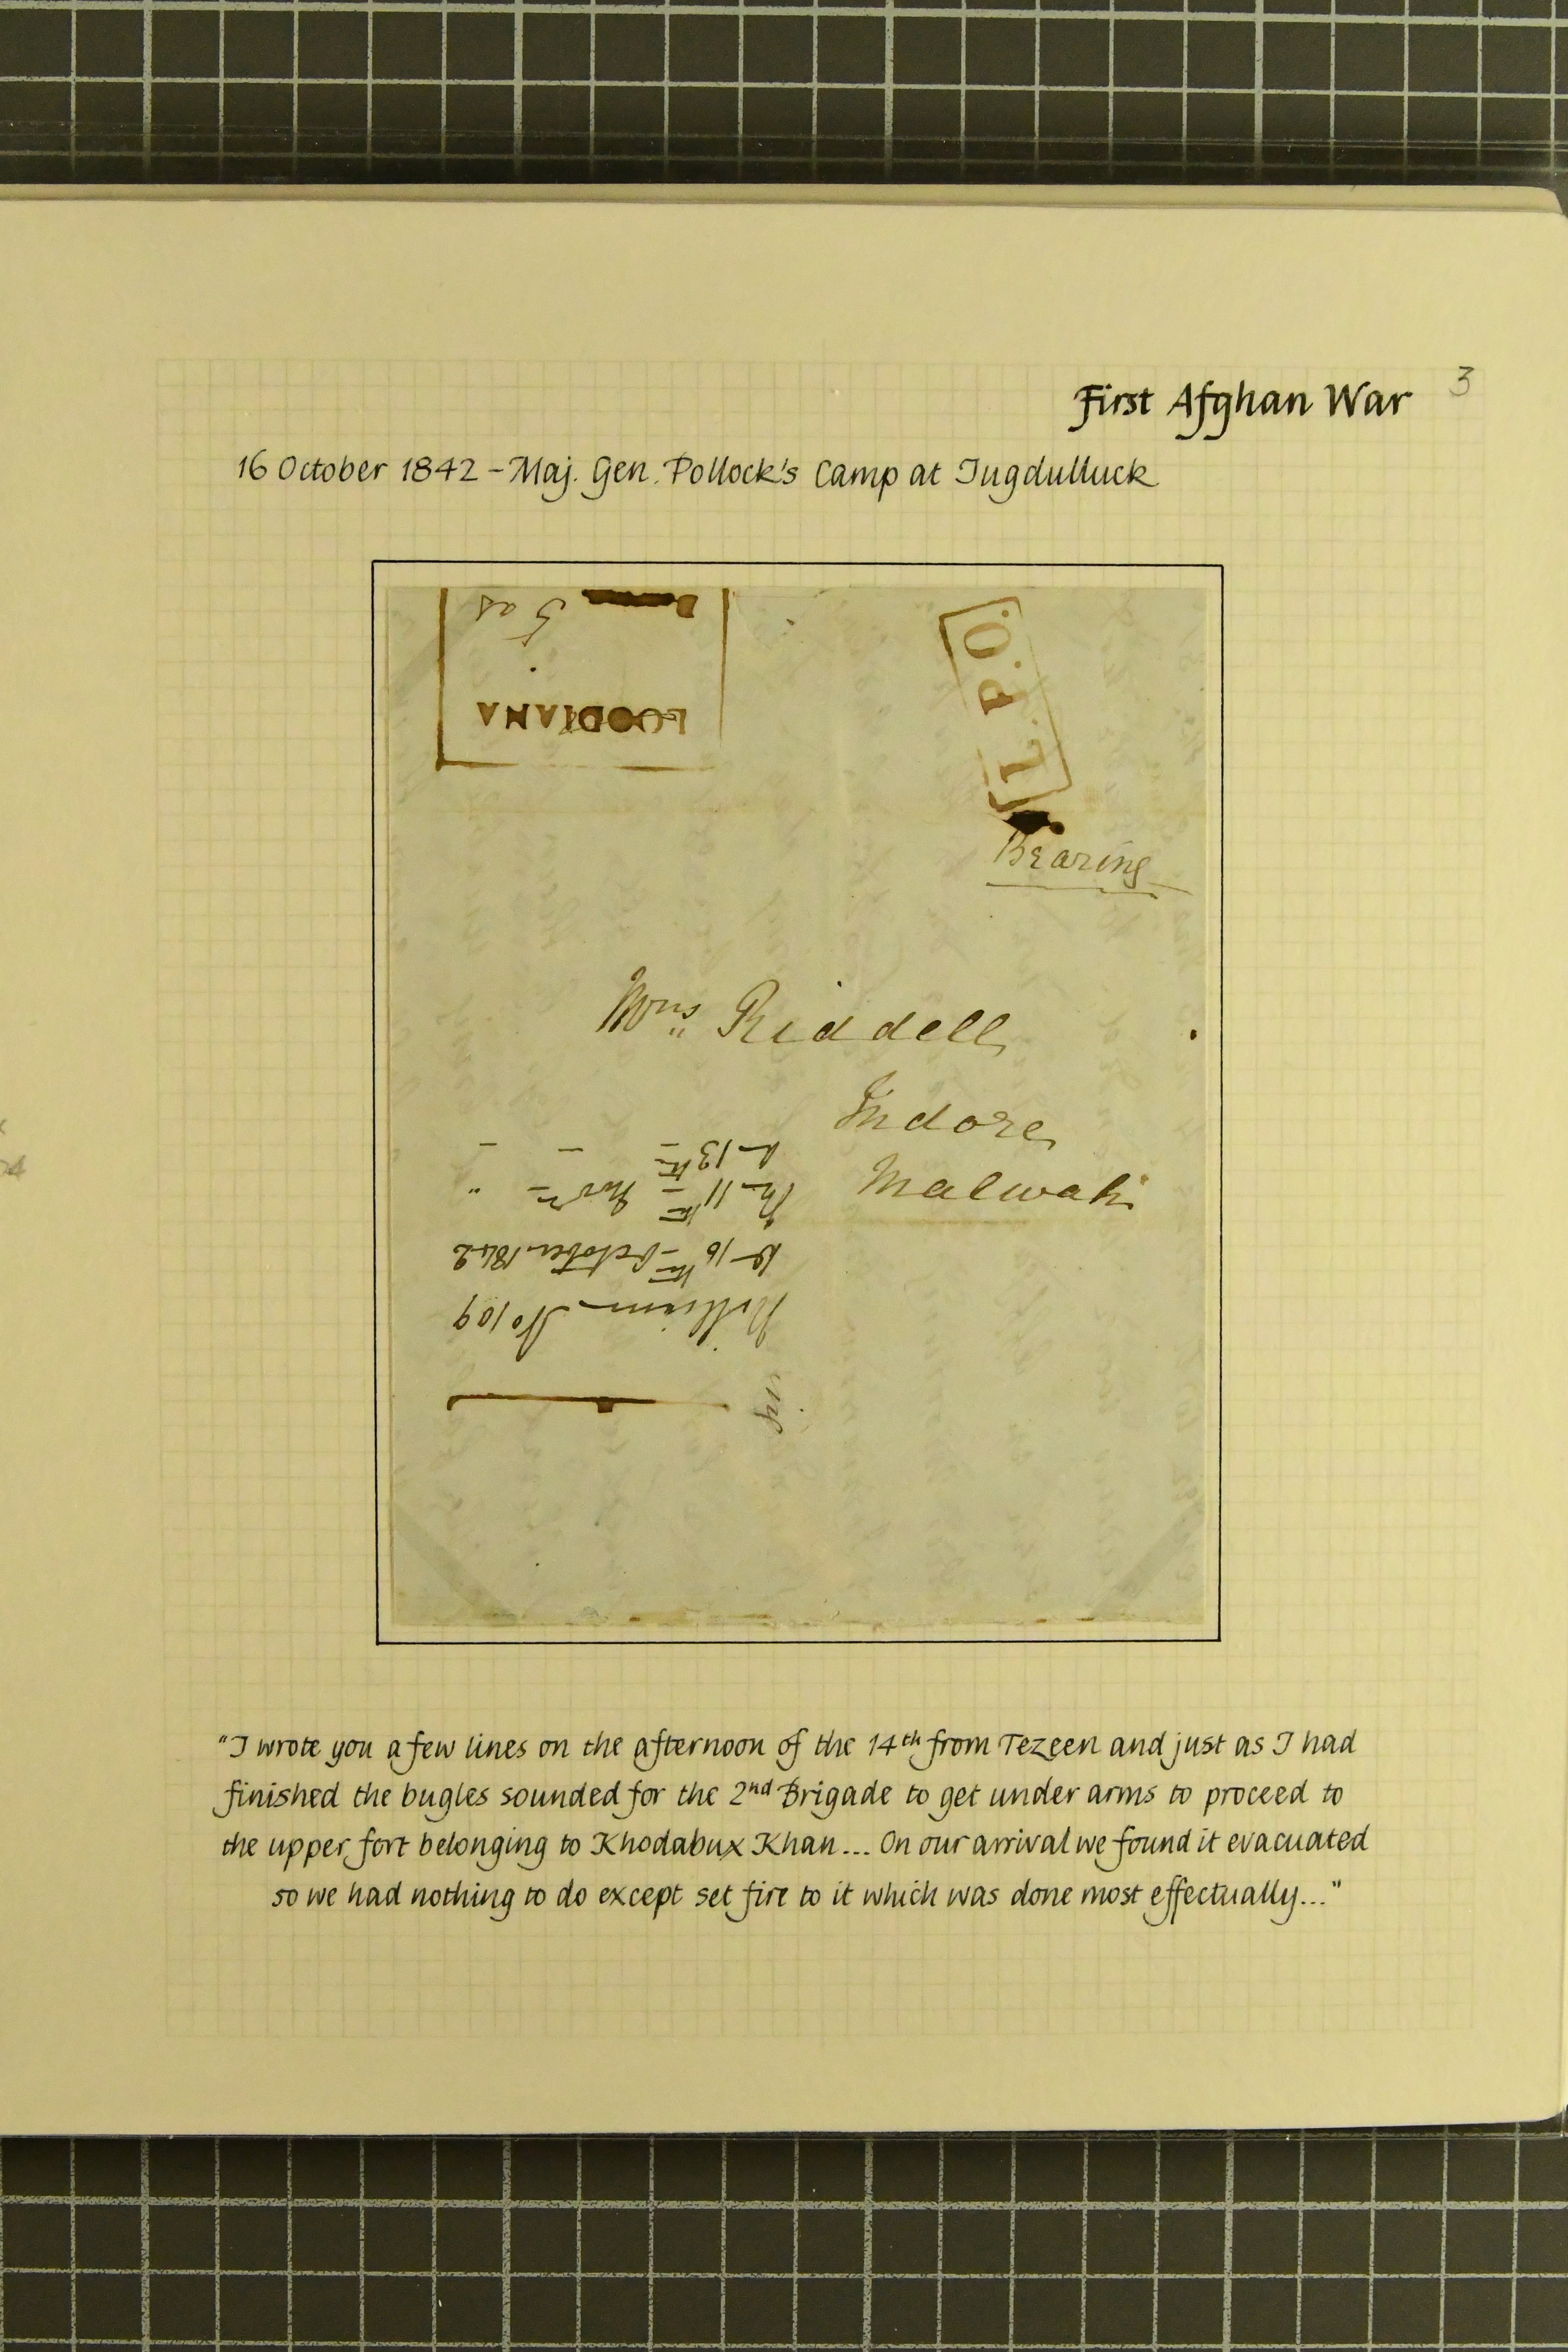 First Afghan War
3
16 October 1842 – Maj. Gen. Pollock's Camp at Jugdulluck
5 as
LOODIANA
L. P. O.
Bearing
Mrs Riddell
Indore
Malwah
13th
11th Novr "
16th October 1842
William No 109
"I wrote you a few lines on the afternoon of the 14th from Tezeen and just as I had
finished the bugles sounded for the 2nd Brigade to get under arms to proceed to
the upper fort belonging to Khodabux Khan... On our arrival we found it evacuated
so we had nothing to do except set fire to it which was done most effectually..."